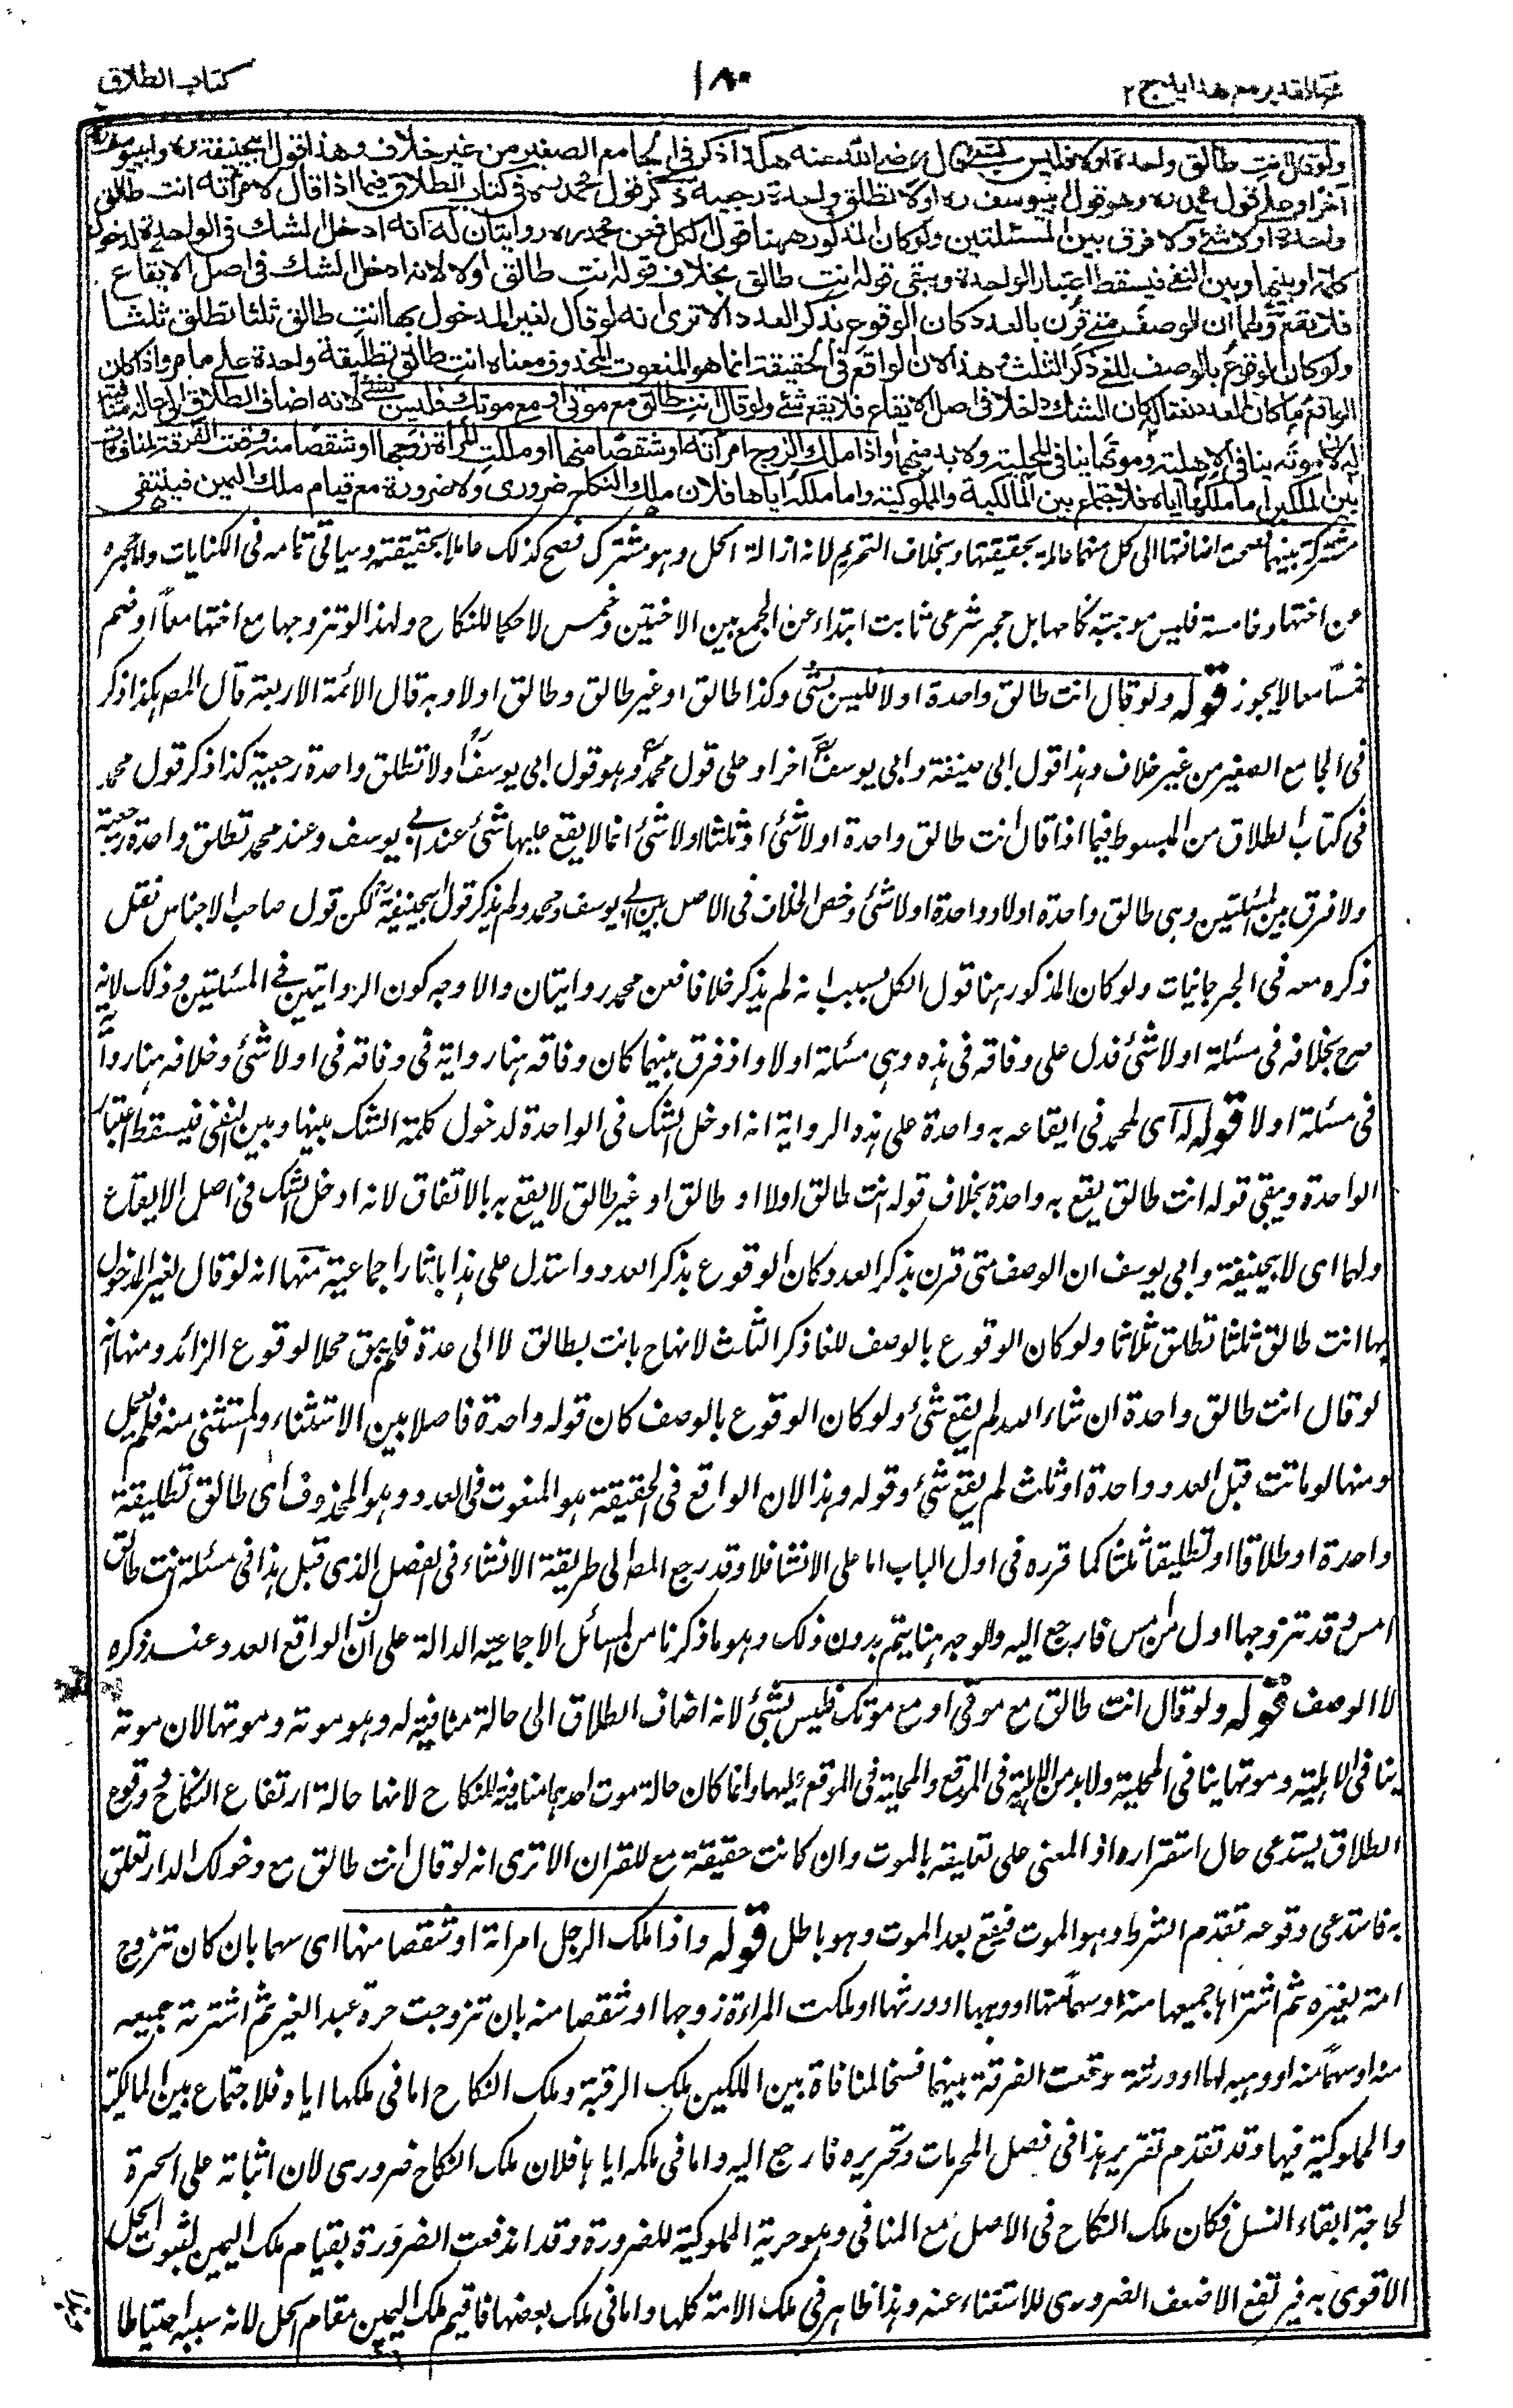 فتح القدير مع هدايه ج ٢
١٨٠
كتاب الطلاق
ولو قال انت طالق واحدة اولا فليس بشئ قال رضي الله عنه هكذا ذكر في الجامع الصغير من غير خلاف وهذا قول ابيحنيفة ره وابييوسف ره
آخرا وعلى قول محمد ره وهو قول ابييوسف ره اولا تطلق واحدة رجعية ذكر قول محمد ره في كتاب الطلاق فيما اذا قال لامرأته انت طالق
واحدة او لا شئ ولا فرق بين المسئلتين ولو كان المذكور ههنا قول الكل فعن محمد ره روايتان له انه ادخل الشك في الواحدة لدخول
كلمة او بينها وبين النفي فيسقط اعتبار الواحدة ويبقى قوله انت طالق بخلاف قوله انت طالق اولا لانه ادخل الشك في اصل الايقاع
فلا يقع ولهما ان الوصف متى قرن بالعدد كان الوقوع بذكر العدد الا ترى انه لو قال لغير المدخول بها انت طالق ثلثا تطلق ثلثا
ولو كان الوقوع بالوصف للغى ذكر الثلث وهذا لان الواقع في الحقيقة انما هو المنعوت المحذوف معناه انت طالق تطليقة واحدة على ما مر واذا كان
الواقع ما كان العدد نعتا له كان الشك داخلا في اصل الايقاع فلا يقع شئ ولو قال انت طالق مع موتي او مع موتك فليس بشئ لانه اضاف الطلاق الى حالة منافية
له لان موته ينافي الاهلية وموتها ينافي المحلية ولا بد منهما واذا ملك الزوج امرأته او شقصا منها او ملكت المرأة زوجها او شقصا منه وقعت الفرقة لمنافاة
بين الملكين اما ملكها اياه فلاجتماع بين المالكية والمملوكية واما ملكه اياها فلان ملك النكاح ضروري ولا ضرورة مع قيام ملك اليمين فينتفى
مشتركة بينهما صحت اضافتها الى كل منهما عاملة بحقيقتها وبخلاف التحريم لانه ازالة الحل وهو مشترك فصح كذلك عاملا بحقيقته وسياتي تمامه في الكنايات والحجره
عن اختها وخامسة فليس موجبة نكاحها بل حجر شرعي ثابت ابتداء عن الجمع بين الاختين وخمس لا حكما للنكاح ولهذا لو تزوجها مع اختها معا او ضم
خمسا معا لا يجوز قوله ولو قال انت طالق واحدة اولا فليس بشئ وكذا طالق او غير طالق وطالق اولا وبه قال الائمة الاربعة قال المص هكذا ذكر
في الجامع الصغير من غير خلاف وهذا قول ابي حنيفة وابي يوسف آخرا وعلى قول محمد وهو قول ابي يوسف اولا تطلق واحدة رجعية كذا ذكر قول محمد
في كتاب الطلاق من المبسوط فيما اذا قال انت طالق واحدة او لا شئ او ثلثا او لا شئ انما لا يقع عليها شئ عند ابي يوسف وعند محمد تطلق واحدة رجعية
ولا فرق بين المسئلتين وهي طالق واحدة اولا وواحدة او لا شئ وخص الخلاف في الاصل بين ابي يوسف ومحمد ولم يذكر قول ابيحنيفة لكن قول صاحب الاجناس نقل
ذكره معه في الجرجانيات ولو كان المذكور هنا قول الكل بسبب انه لم يذكر خلافا فعن محمد روايتان والاوجه كون الروايتين في المسئلتين وذلك لانه
صرح بخلافه في مسئلة او لا شئ فدل على وفاقه في هذه وهي مسئلة اولا واذ فرق بينهما كان وفاقه هنا رواية في وفاقه في او لا شئ وخلافه هنا رواية
في مسئلة اولا قوله له اى لمحمد في ايقاعه به واحدة على هذه الرواية انه ادخل الشك في الواحدة لدخول كلمة الشك بينها وبين النفي فيسقط اعتبار
الواحدة ويبقى قوله انت طالق يقع به واحدة بخلاف قوله انت طالق اولا او طالق او غير طالق لا يقع به بالاتفاق لانه ادخل الشك في اصل الايقاع
ولهما اى لابيحنيفة وابي يوسف ان الوصف متى قرن بذكر العدد كان الوقوع بذكر العدد واستدل على هذا باثار اجماعية منها انه لو قال لغير المدخول
بها انت طالق ثلثا تطلق ثلاثا ولو كان الوقوع بالوصف للغا ذكر الثلث لانها ح بانت بطالق لا الى عدة فلم يبق محلا لوقوع الزائد ومنها انه
لو قال انت طالق واحدة ان شاء الله لم يقع شئ ولو كان الوقوع بالوصف كان قوله واحدة فاصلا بين الاستثناء والمستثنى منه فلم يعمل
ومنها لو ماتت قبل العدد واحدة او ثلث لم يقع شئ وقوله وهذا لان الواقع في الحقيقة هو المنعوت في العدد وهو المحذوف اى طالق تطليقة
واحدة او طلاقا او تطليقا ثلثا كما قرره في اول الباب اما على الانشا فلا وقد رجع المص الى طريقة الانشاء في الفصل الذي قبل هذا في مسئلة انت طالق
امس وقد تزوجها اول من امس فارجع اليه والوجه هنا يتم بدون ذلك وهو ما ذكرنا من المسائل الاجماعية الدالة على ان الواقع العدد عند ذكره
لا الوصف قوله ولو قال انت طالق مع موتي او مع موتك فليس بشئ لانه اضاف الطلاق الى حالة منافية له وهو موته وموتها لان موته
ينافي الاهلية وموتها ينافي المحلية ولا بد من الاهلية في الموقع والمحلية في الموقع عليها وانما كان حالة موت احدهما منافية للنكاح لانها حالة ارتفاع النكاح ووقوع
الطلاق يستدعي حال استقراره اذ المعنى على تعليقه بالموت وان كانت حقيقة مع للقران الا ترى انه لو قال انت طالق مع دخولك الدار تعلق
به فاستدعى وقوعه تقدم الشرط وهو الموت فيقع بعد الموت وهو باطل قوله واذا ملك الرجل امرأته او شقصا منها اى سهما بان كان تزوج
امة لغيره ثم اشتراها جميعها منه او سهما منها او وهبها او ورثها او ملكت المراءة زوجها او شقصا منه بان تزوجت حرة عبد الغير ثم اشترته جميعه
منه او سهما منه او وهبه لها او ورثته وقعت الفرقة بينهما فسخا لمنافاة بين الملكين ملك الرقبة وملك النكاح اما في ملكها اياه فلاجتماع بين المالكية
والمملوكية فيها وقد تقدم تقرير هذا في فصل المحرمات وتحريره فارجع اليه واما في ملكه اياها فلان ملك النكاح ضروري لان اثباته على الحرة
لحاجة ابقاء النسل فكان ملك النكاح في الاصل مع المنافي وهو حرية المملوكية للضرورة وقد اندفعت الضرورة بقيام ملك اليمين لثبوت الحل
الاقوى به فيرتفع الاضعف الضروري للاستغناء عنه وهذا ظاهر في ملك الامة كلها واما في ملك بعضها فاقيم ملك اليمين مقام الحل لانه سببه احتياطا